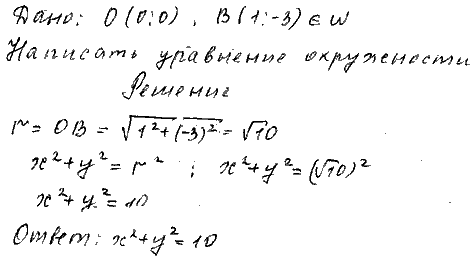 Дано: O(0;0), B(1;-3) ∈ w
Написать уравнение окружности
Решение
r = OB = √(1²+(-3)²) = √10
x²+y² = r² ; x²+y² = (√10)²
x²+y² = 10
Ответ: x²+y² = 10